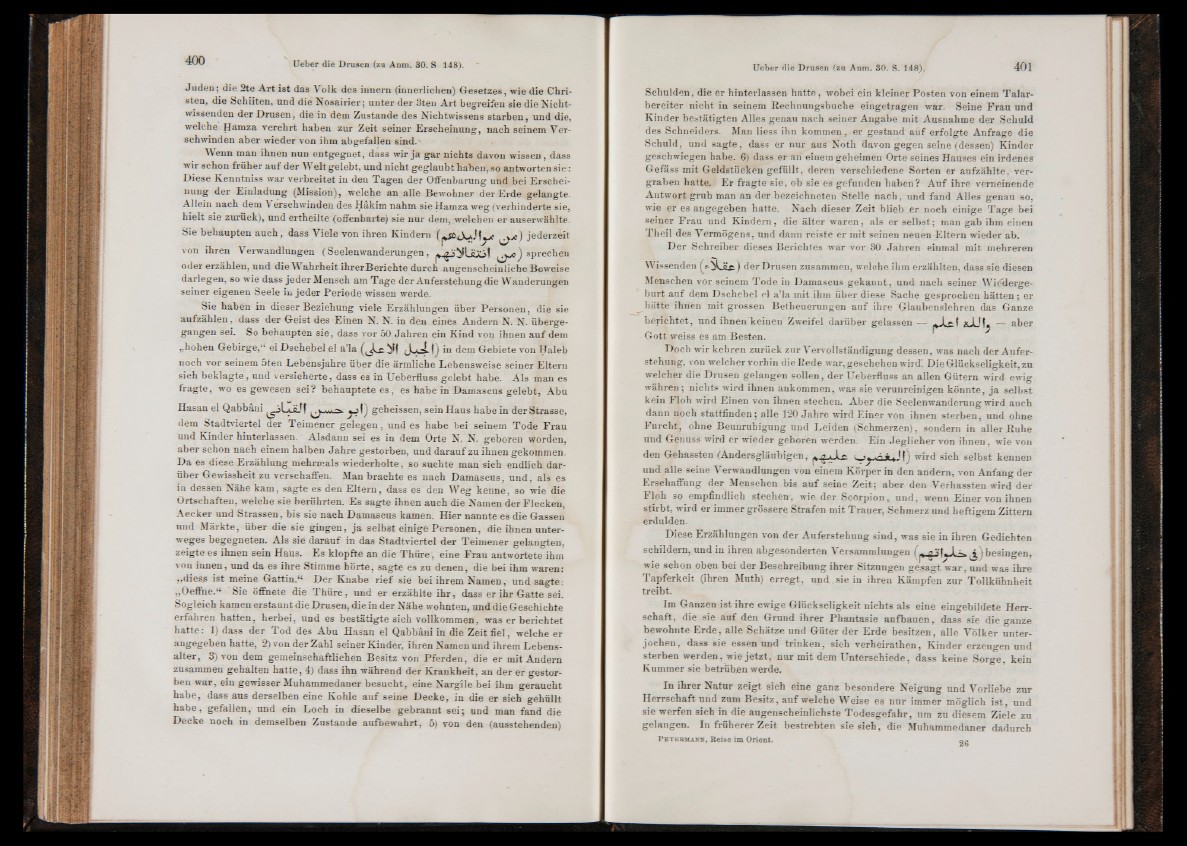 400
Ueber die Drusen (zu Anm. 30. S 148).
Juden; die 2te Art ist das Volk des innern (innerlichen) Gesetzes, wie die Chri-
sten, die Schiiten, und die Nosairier; unter der 3ten Art begreifen sie die Nicht-
wissenden der Drusen, die in dem Zustande des Nichtwissens starben, und die,
welche Ḥamza verehrt haben zur Zeit seiner Erscheinung, nach seinem Ver-
schwinden aber wieder von ihm abgefallen sind.
Wenn man ihnen nun entgegnet, dass wir ja gar nichts davon wissen, dass
wir schon früher auf der Welt gelebt, und nicht geglaubt haben, so antworten sie:
Diese Kenntniss war verbreitet in den Tagen der Offenbarung und bei Erschei-
nung der Einladung (Mission), welche an alle Bewohner der Erde gelangte.
Allein nach dem Verschwinden des Ḥâkim nahm sie Hamza weg (verhinderte sie,
hielt sie zurück), und ertheilte (offenbarte) sie nur dem, welchen er auserwählte.
Sie behaupten auch, dass Viele von ihren Kindern (من اولادهم) jederzeit
von ihren Verwandlungen (Seelenwanderungen, من انتقالاتهم) sprechen
oder erzählen, und die Wahrheit ihrer Berichte durch augenscheinliche Beweise
darlegen, so wie dass jeder Mensch am Tage der Auferstehung die Wanderungen
seiner eigenen Seele in jeder Periode wissen werde.
Sie haben in dieser Beziehung viele Erzählungen über Personen, die sie
aufzählen, dass der Geist des Einen N. N. in den eines Andern N. N. überge-
gangen sei. So behaupten sie, dass vor 50 Jahren ein Kind von ihnen auf dem
„hohen Gebirge,“ el Dschebel el a'la (الجبل الاعلى) in dem Gebiete von Ḥaleb
noch vor seinem 5ten Lebensjahre über die ärmliche Lebensweise seiner Eltern
sich beklagte, und versicherte, dass es in Ueberfluss gelebt habe. Als man es
fragte, wo es gewesen sei? behauptete es, es habe in Damascus gelebt, Abu
Hasan el Qabbâni (ابو حسن القباني) geheissen, sein Haus habe in der Strasse,
dem Stadtviertel der Teimener gelegen, und es habe bei seinem Tode Frau
und Kinder hinterlassen. Alsdann sei es in dem Orte N. N. geboren worden,
aber schon nach einem halben Jahre gestorben, und darauf zu ihnen gekommen.
Da es diese Erzählung mehrmals wiederholte, so suchte man sich endlich dar-
über Gewissheit zu verschaffen. Man brachte es nach Damascus, und, als es
in dessen Nähe kam, sagte es den Eltern, dass es den Weg kenne, so wie die
Ortschaften, welche sie berührten. Es sagte ihnen auch die Namen der Flecken,
Aecker und Strassen, bis sie nach Damascus kamen. Hier nannte es die Gassen
und Märkte, über die sie gingen, ja selbst einige Personen, die ihnen unter-
weges begegneten. Als sie darauf in das Stadtviertel der Teimener gelangten,
zeigte es ihnen sein Haus. Es klopfte an die Thüre, eine Frau antwortete ihm
von innen, und da es ihre Stimme hörte, sagte es zu denen, die bei ihm waren:
„diess ist meine Gattin.“ Der Knabe rief sie bei ihrem Namen, und sagte:
„Oeffne.“ Sie öffnete die Thüre, und er erzählte ihr, dass er ihr Gatte sei.
Sogleich kamen erstaunt die Drusen, die in der Nähe wohnten, und die Geschichte
erfahren hatten, herbei, und es bestätigte sich vollkommen, was er berichtet
hatte: 1) dass der Tod des Abu Hasan el Qabbâni in die Zeit fiel, welche er
angegeben hatte, 2) von der Zahl seiner Kinder, ihren Namen und ihrem Lebens-
alter, 3) von dem gemeinschaftlichen Besitz von Pferden, die er mit Andern
zusammen gehalten hatte, 4) dass ihn während der Krankheit, an der er gestor-
ben war, ein gewisser Muhammedaner besucht, eine Nargile bei ihm geraucht
habe, dass aus derselben eine Kohle auf seine Decke, in die er sich gehüllt
habe, gefallen, und ein Loch in dieselbe gebrannt sei; und man fand die
Decke noch in demselben Zustande aufbewahrt, 5) von den (ausstehenden)
Ueber die Drusen (zu Anm. 30. S. 148).
401
Schulden, die er hinterlassen hatte, wobei ein kleiner Posten von einem Talar-
bereiter nicht in seinem Rechnungsbuche eingetragen war. Seine Frau und
Kinder bestätigten Alles genau nach seiner Angabe mit Ausnahme der Schuld
des Schneiders. Man liess ihn kommen, er gestand auf erfolgte Anfrage die
Schuld, und sagte, dass er nur aus Noth davon gegen seine (dessen) Kinder
geschwiegen habe. 6) dass er an einem geheimen Orte seines Hauses ein irdenes
Gefäss mit Geldstücken gefüllt, deren verschiedene Sorten er aufzählte, ver-
graben hatte. Er fragte sie, ob sie es gefunden haben? Auf ihre verneinende
Antwort grub man an der bezeichneten Stelle nach, und fand Alles genau so,
wie er es angegeben hatte. Nach dieser Zeit blieb er noch einige Tage bei
seiner Frau und Kindern, die älter waren, als er selbst; man gab ihm einen
Theil des Vermögens, und dann reiste er mit seinen neuen Eltern wieder ab.
Der Schreiber dieses Berichtes war vor 30 Jahren einmal mit mehreren
Wissenden (عقلاء) der Drusen zusammen, welche ihm erzählten, dass sie diesen
Menschen vor seinem Tode in Damascus gekannt, und nach seiner Wiederge-
burt auf dem Dschebel el a'la mit ihm über diese Sache gesprochen hätten; er
hätte ihnen mit grossen Betheuerungen auf ihre Glaubenslehren das Ganze
berichtet, und ihnen keinen Zweifel darüber gelassen — والله اعلم — aber
Gott weiss es am Besten.
Doch wir kehren zurück zur Vervollständigung dessen, was nach der Aufer-
stehung, von welcher vorhin die Rede war, geschehen wird. Die Glückseligkeit, zu
welcher die Drusen gelangen sollen, der Ueberfluss an allen Gütern wird ewig
währen; nichts wird ihnen ankommen, was sie verunreinigen könnte, ja selbst
kein Floh wird Einen von ihnen stechen. Aber die Seelenwanderung wird auch
dann noch stattfinden; alle 120 Jahre wird Einer von ihnen sterben, und ohne
Furcht, ohne Beunruhigung und Leiden (Schmerzen), sondern in aller Ruhe
und Genuss wird er wieder geboren werden. Ein Jeglicher von ihnen, wie von
den Gehassten (Andersgläubigen, المغضوب عليهم) wird sich selbst kennen
und alle seine Verwandlungen von einem Körper in den andern, von Anfang der
Erschaffung der Menschen bis auf seine Zeit; aber den Verhassten wird der
Floh so empfindlich stechen, wie der Scorpion, und, wenn Einer von ihnen
stirbt, wird er immer grössere Strafen mit Trauer, Schmerz und heftigem Zittern
erdulden.
Diese Erzählungen von der Auferstehung sind, was sie in ihren Gedichten
schildern, und in ihren abgesonderten Versammlungen (في خلواتهم) besingen,
wie schon oben bei der Beschreibung ihrer Sitzungen gesagt war, und was ihre
Tapferkeit (ihren Muth) erregt, und sie in ihren Kämpfen zur Tollkühnheit
treibt.
Im Ganzen ist ihre ewige Glückseligkeit nichts als eine eingebildete Herr-
schaft, die sie auf den Grund ihrer Phantasie aufbauen, dass sie die ganze
bewohnte Erde, alle Schätze und Güter der Erde besitzen, alle Völker unter-
jochen, dass sie essen und trinken, sich verheirathen, Kinder erzeugen und
sterben werden, wie jetzt, nur mit dem Unterschiede, dass keine Sorge, kein
Kummer sie betrüben werde.
In ihrer Natur zeigt sich eine ganz besondere Neigung und Vorliebe zur
Herrschaft und zum Besitz, auf welche Weise es nur immer möglich ist, und
sie werfen sich in die augenscheinlichste Todesgefahr, um zu diesem Ziele zu
gelangen. In früherer Zeit bestrebten sie sich, die Muhammedaner dadurch
PETERMANN, Reise im Orient.
26